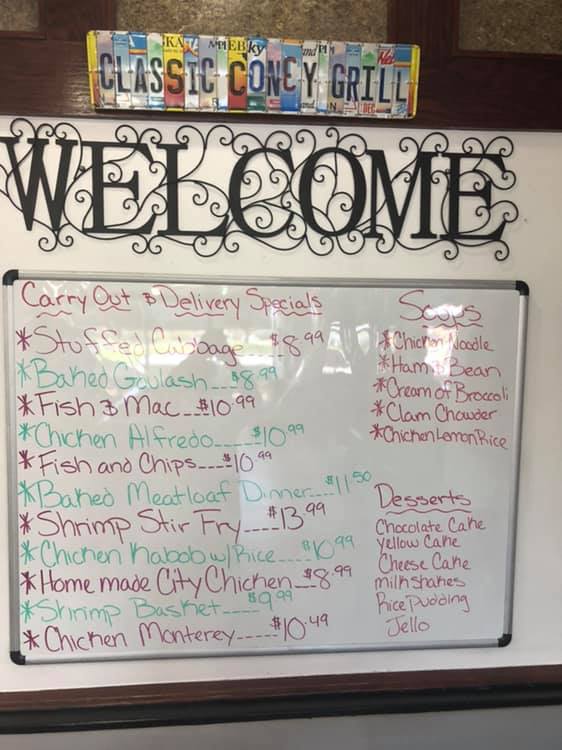 CLASSIC CONEY GRILL
WELCOME
Carry Out & Delivery Specials
*Stuffed Cabbage $8.99
*Baked Goulash---$8.99
*Fish & Mac---$10.99
*Chicken Alfredo-----$10.99
*Fish and Chips---$10.99
*Baked Meatloaf Dinner---$11.50
*Shrimp Stir Fry----$13.99
*Chicken Kabob w/Rice----$10.99
*Home made City Chicken--$8.99
*Shrimp Basket----$9.99
*Chicken Monterey-----$10.49
Soups
*Chicken Noodle
*Ham & Bean
*Cream of Broccoli
*Clam Chowder
*Chicken Lemon Rice
Desserts
Chocolate Cake
Yellow Cake
Cheese Cake
milkshakes
Rice pudding
Jello